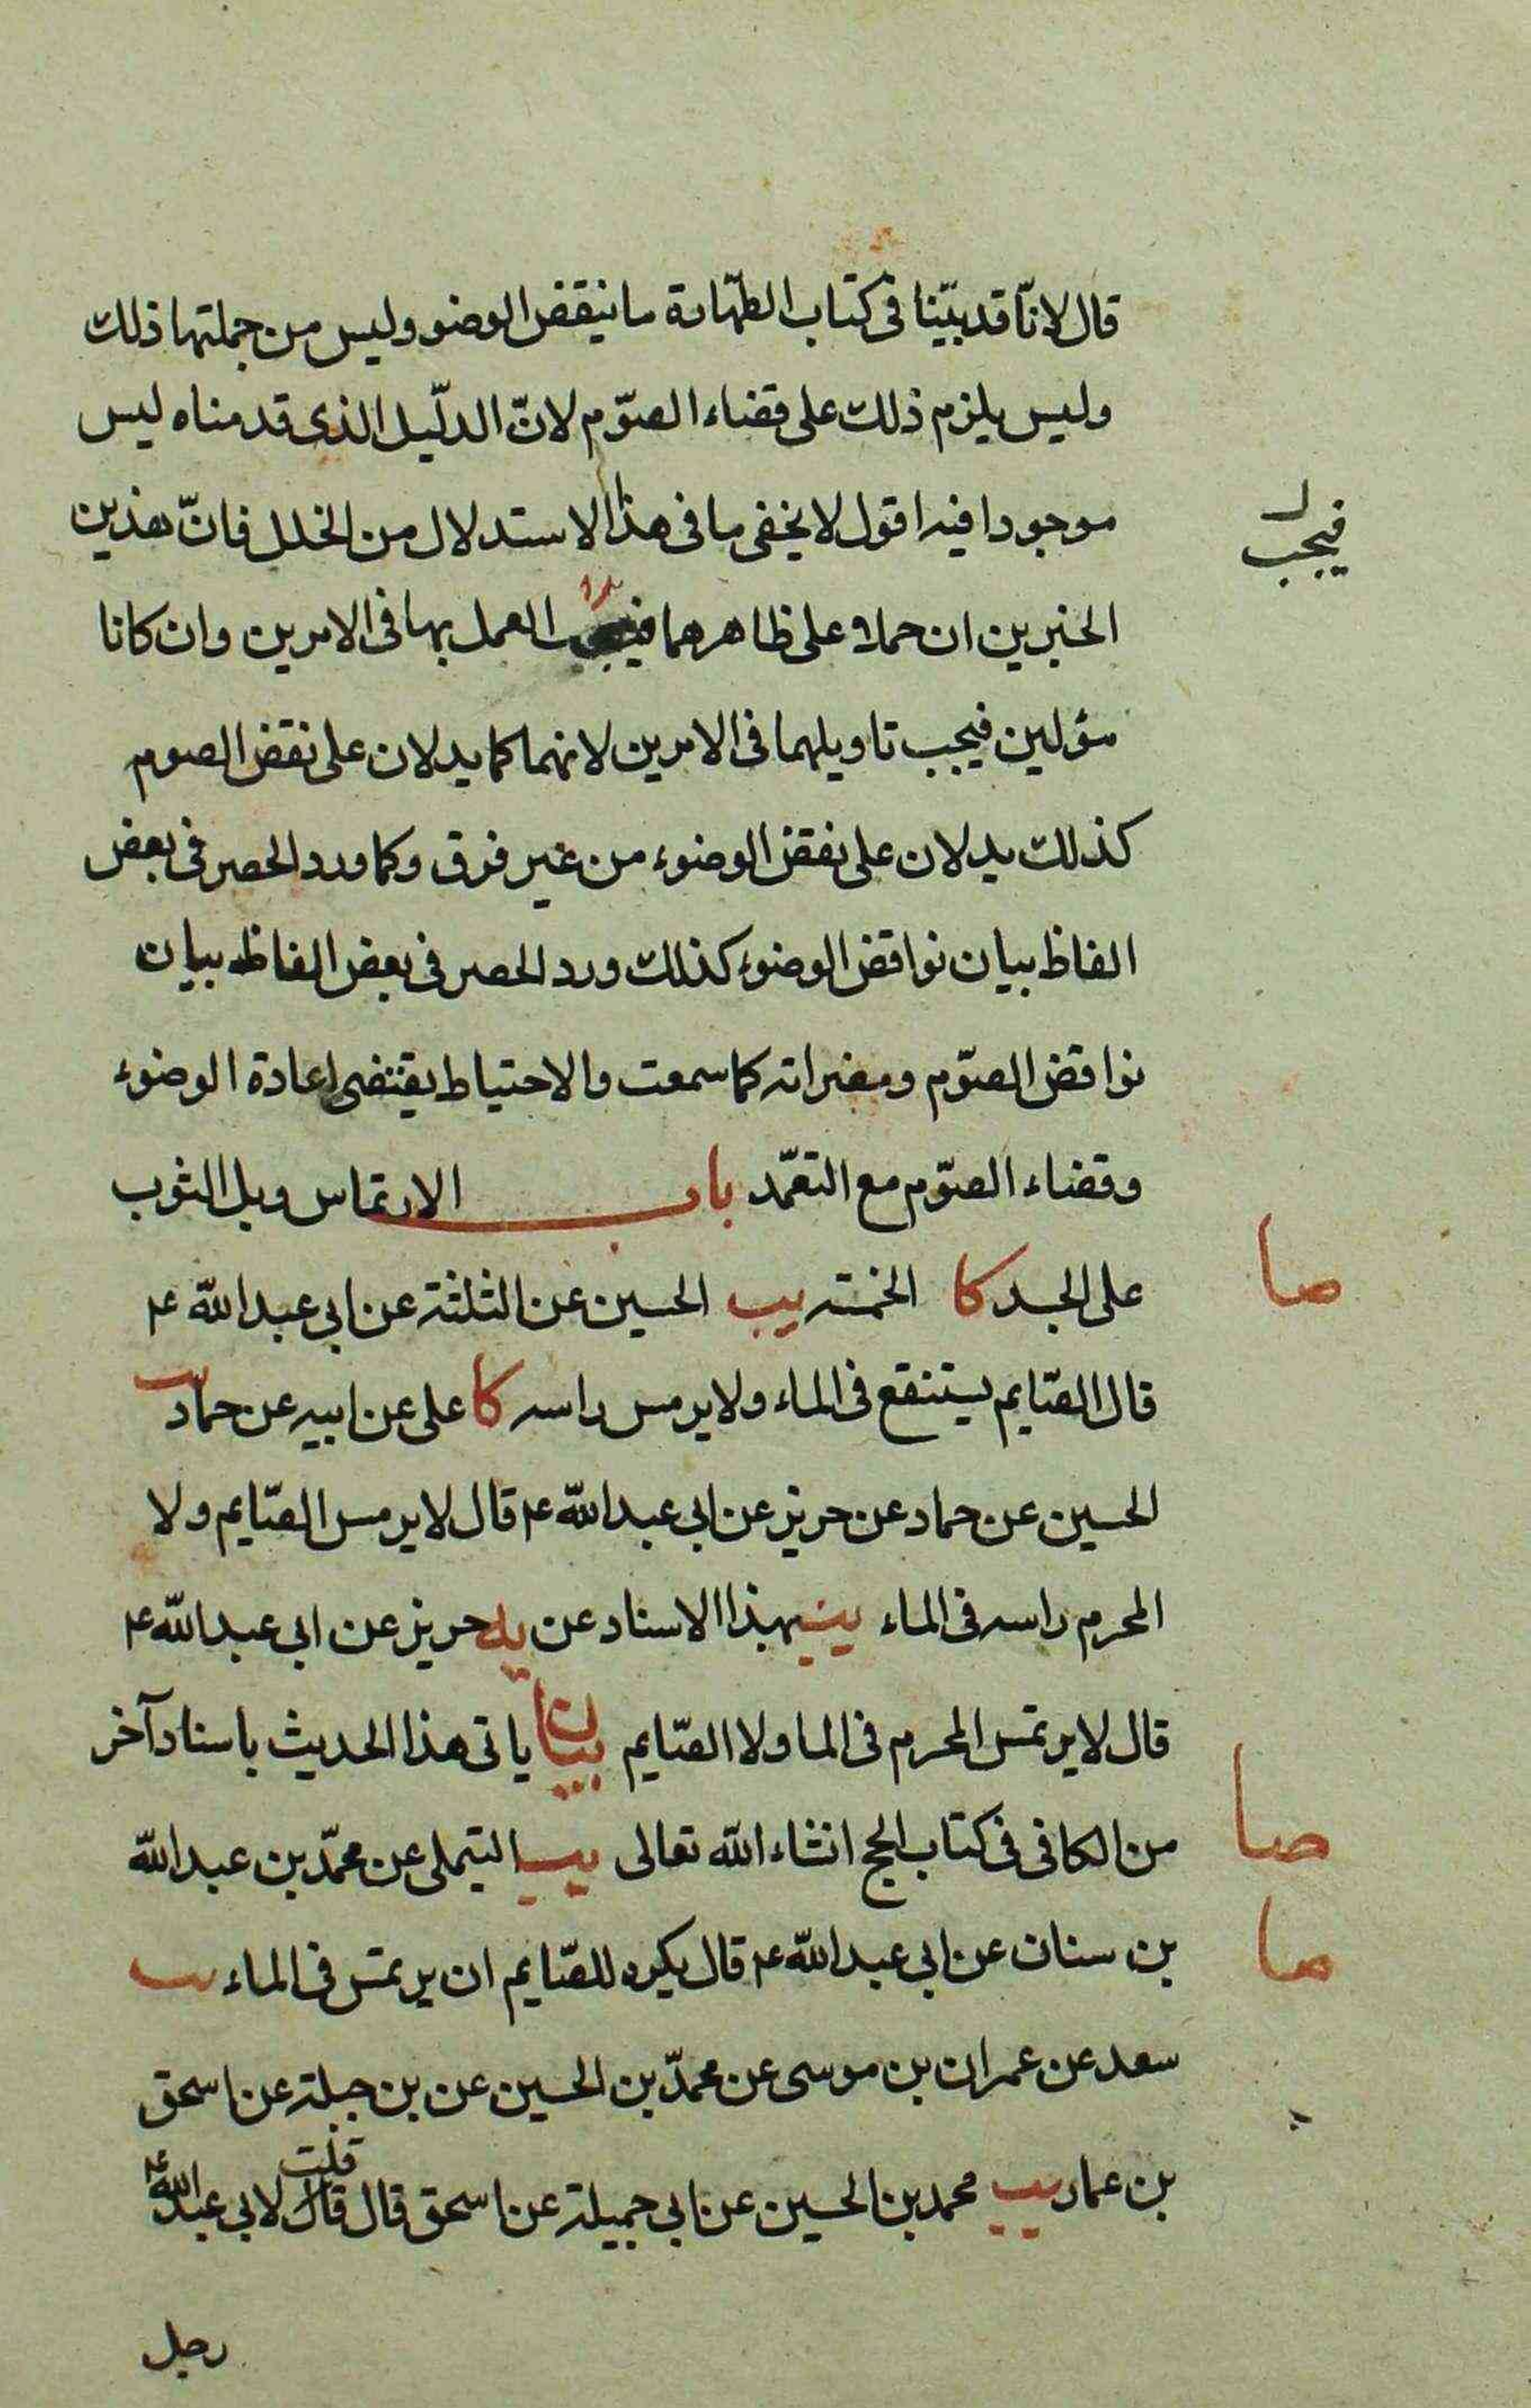 قال لانّا قد بيّنا فى كتاب الطّهارة ما ينقض الوضو وليس من جملتها ذلك
وليس يلزم ذلك على قضاء الصّوم لانّ الدلّيل الذى قدمناه ليس
موجودا فيه اقول لا يخفى ما فى هذا الاستدلال من الخلل فانّ هذين
فيجب
الخبرين ان حملا على ظاهرهما فيجب العمل بها فى الامرين وان كانا
مؤلين فيجب تاويلهما فى الامرين لانهما كما يدلان على نقض الصوم
كذلك يدلان على نقض الوضوء من غير فرق وكما ورد الحصر فى بعض
الفاظ بيان نواقض الوضوء كذلك ورد الحصر فى بعض الفاظ بيان
نواقض الصّوم ومضراته كما سمعت والاحتياط يقتضى اعادة الوضوء
وقضاء الصّوم مع التعمّد باب الارتماس وبل الثوب
على الجسد كا الخمسة يب الحسين عن الثلثة عن ابى عبدالله ع
صا
قال الصّايم يستنقع فى الماء ولا يرمس راسه كا على عن ابيه عن حماد يب
الحسين عن حماد عن حريز عن ابى عبدالله ع قال لا يرمس الصّايم ولا
المحرم راسه فى الماء يب بهذا الاسناد عن يه حريز عن ابى عبدالله ع
قال لا يرتمس المحرم فى الما ولا الصّايم بيان ياتى هذا الحديث باسناد آخر
من الكافى فى كتاب الحج انشاء الله تعالى يب التيملى عن محمّد بن عبدالله
صا
بن سنان عن ابى عبدالله ع قال يكره للصّايم ان يرتمس فى الماء يب
صا
سعد عن عمران بن موسى عن محمدّ بن الحسين عن بن جبلة عن اسحق
بن عمار يب محمد بن الحسين عن ابى جميلة عن اسحق قال قال قلت لابى عبدالله ع
رجل